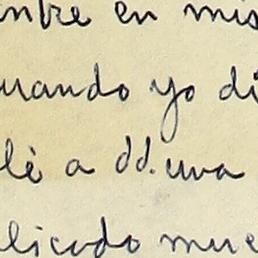 entre en mis
uando yo di
lé a dd. una
licado mue